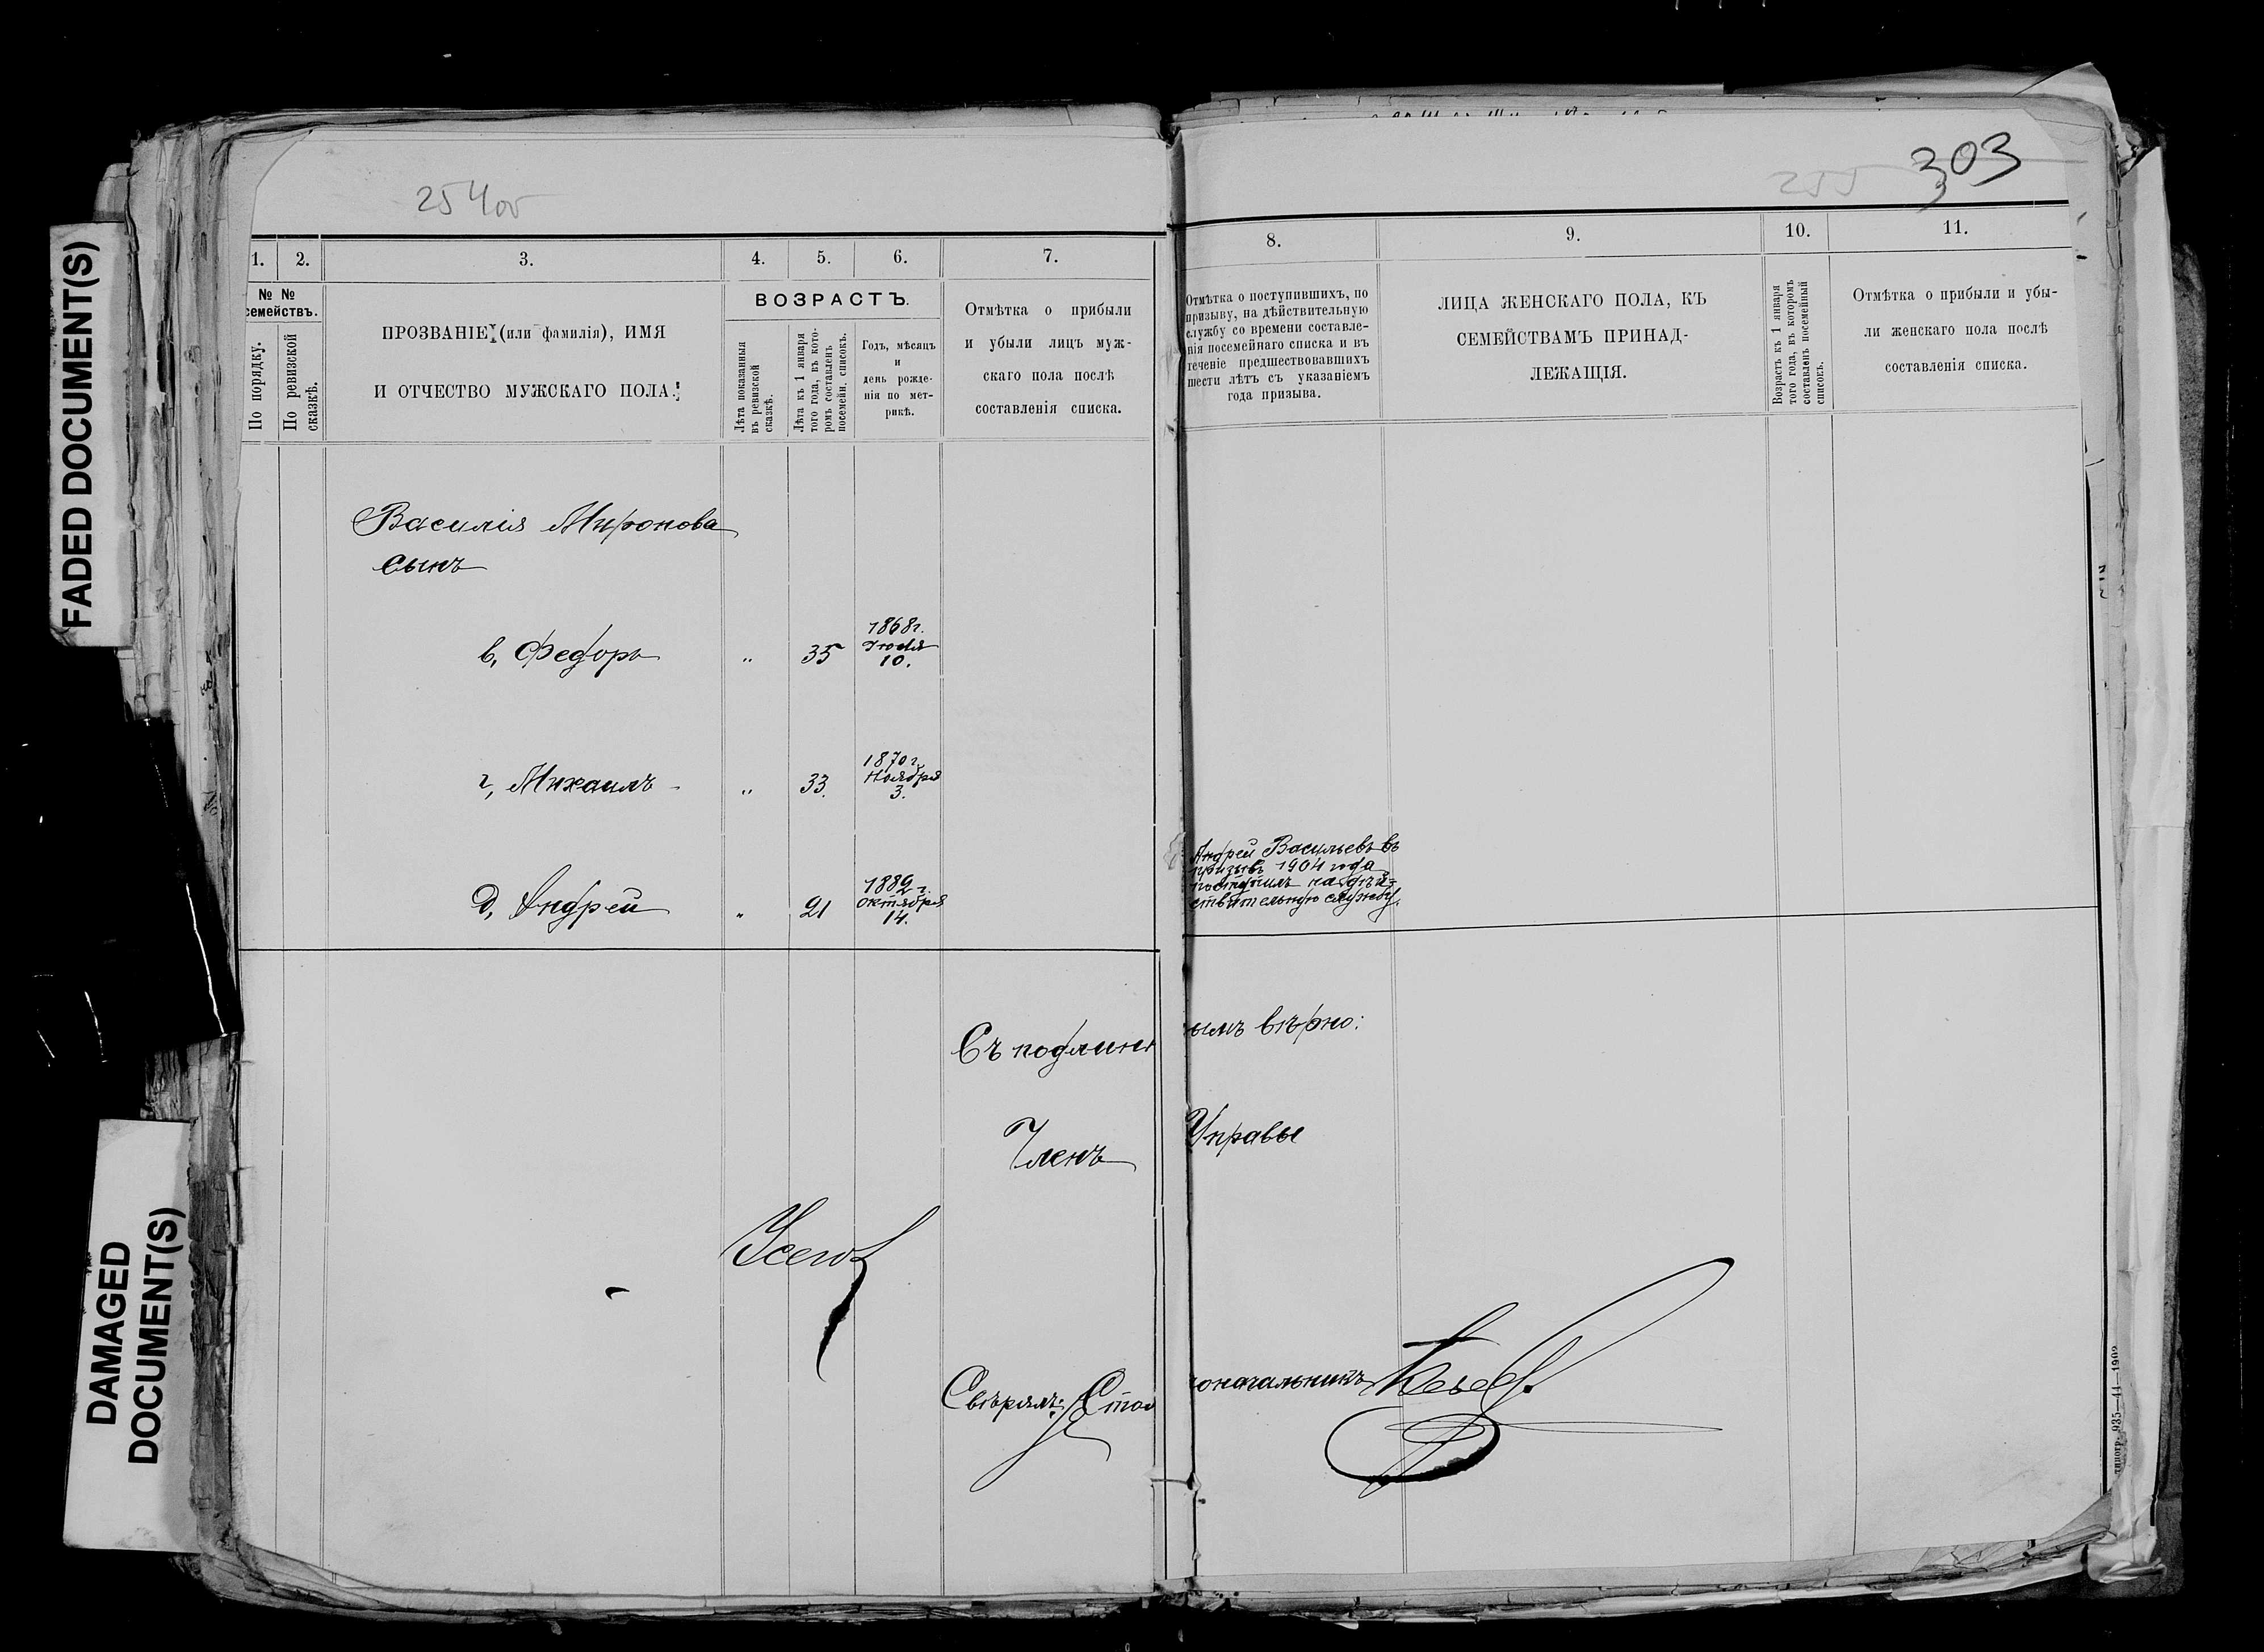 FADED DOCUMENT(S)
DAMAGED
DOCUMENT(S)
254об
1. 2. 3. 4. 5. 6. 7.
№ №
семействъ.
По порядку.
По ревизской
сказкѣ.
ПРОЗВАНІЕ (или фамилія), ИМЯ
И ОТЧЕСТВО МУЖСКАГО ПОЛА.
ВОЗРАСТЪ.
Лѣта показанныя
въ ревизской
сказкѣ.
Лѣта къ 1 января
того года, въ кото-
ромъ составленъ
посемейн. списокъ.
Годъ, мѣсяцъ
и
день рожде-
нія по мет-
рикѣ.
Отмѣтка о прибыли
и убыли лицъ муж-
скаго пола послѣ
составленія списка.
Василія Миронова
сынъ
в, Федоръ " 35 1868г.
Іюля
10.
г, Михаилъ - " 33. 1870г.
Ноября
3.
д, Андрей " 21 1882г.
октября
14.
Съ подлинн
Членъ
Свѣрялъ: Стол
255 303
8. 9. 10. 11.
Отмѣтка о поступившихъ, по
призыву, на дѣйствительную
службу со времени составле-
нія посемейнаго списка и въ
теченіе предшествовавшихъ
шести лѣтъ съ указаніемъ
года призыва.
ЛИЦА ЖЕНСКАГО ПОЛА, КЪ
СЕМЕЙСТВАМЪ ПРИНАД-
ЛЕЖАЩІЯ.
Возрастъ къ 1 января
того года, въ которомъ
составленъ посемейный
списокъ.
Отмѣтка о прибыли и убы-
ли женскаго пола послѣ
составленія списка.
Андрей Васильевъ въ
призывъ 1904 года
поступилъ на дѣй-
ствительную службу.
ымъ вѣрно:
Управы
оначальникъ
типогр. 935—44—1902